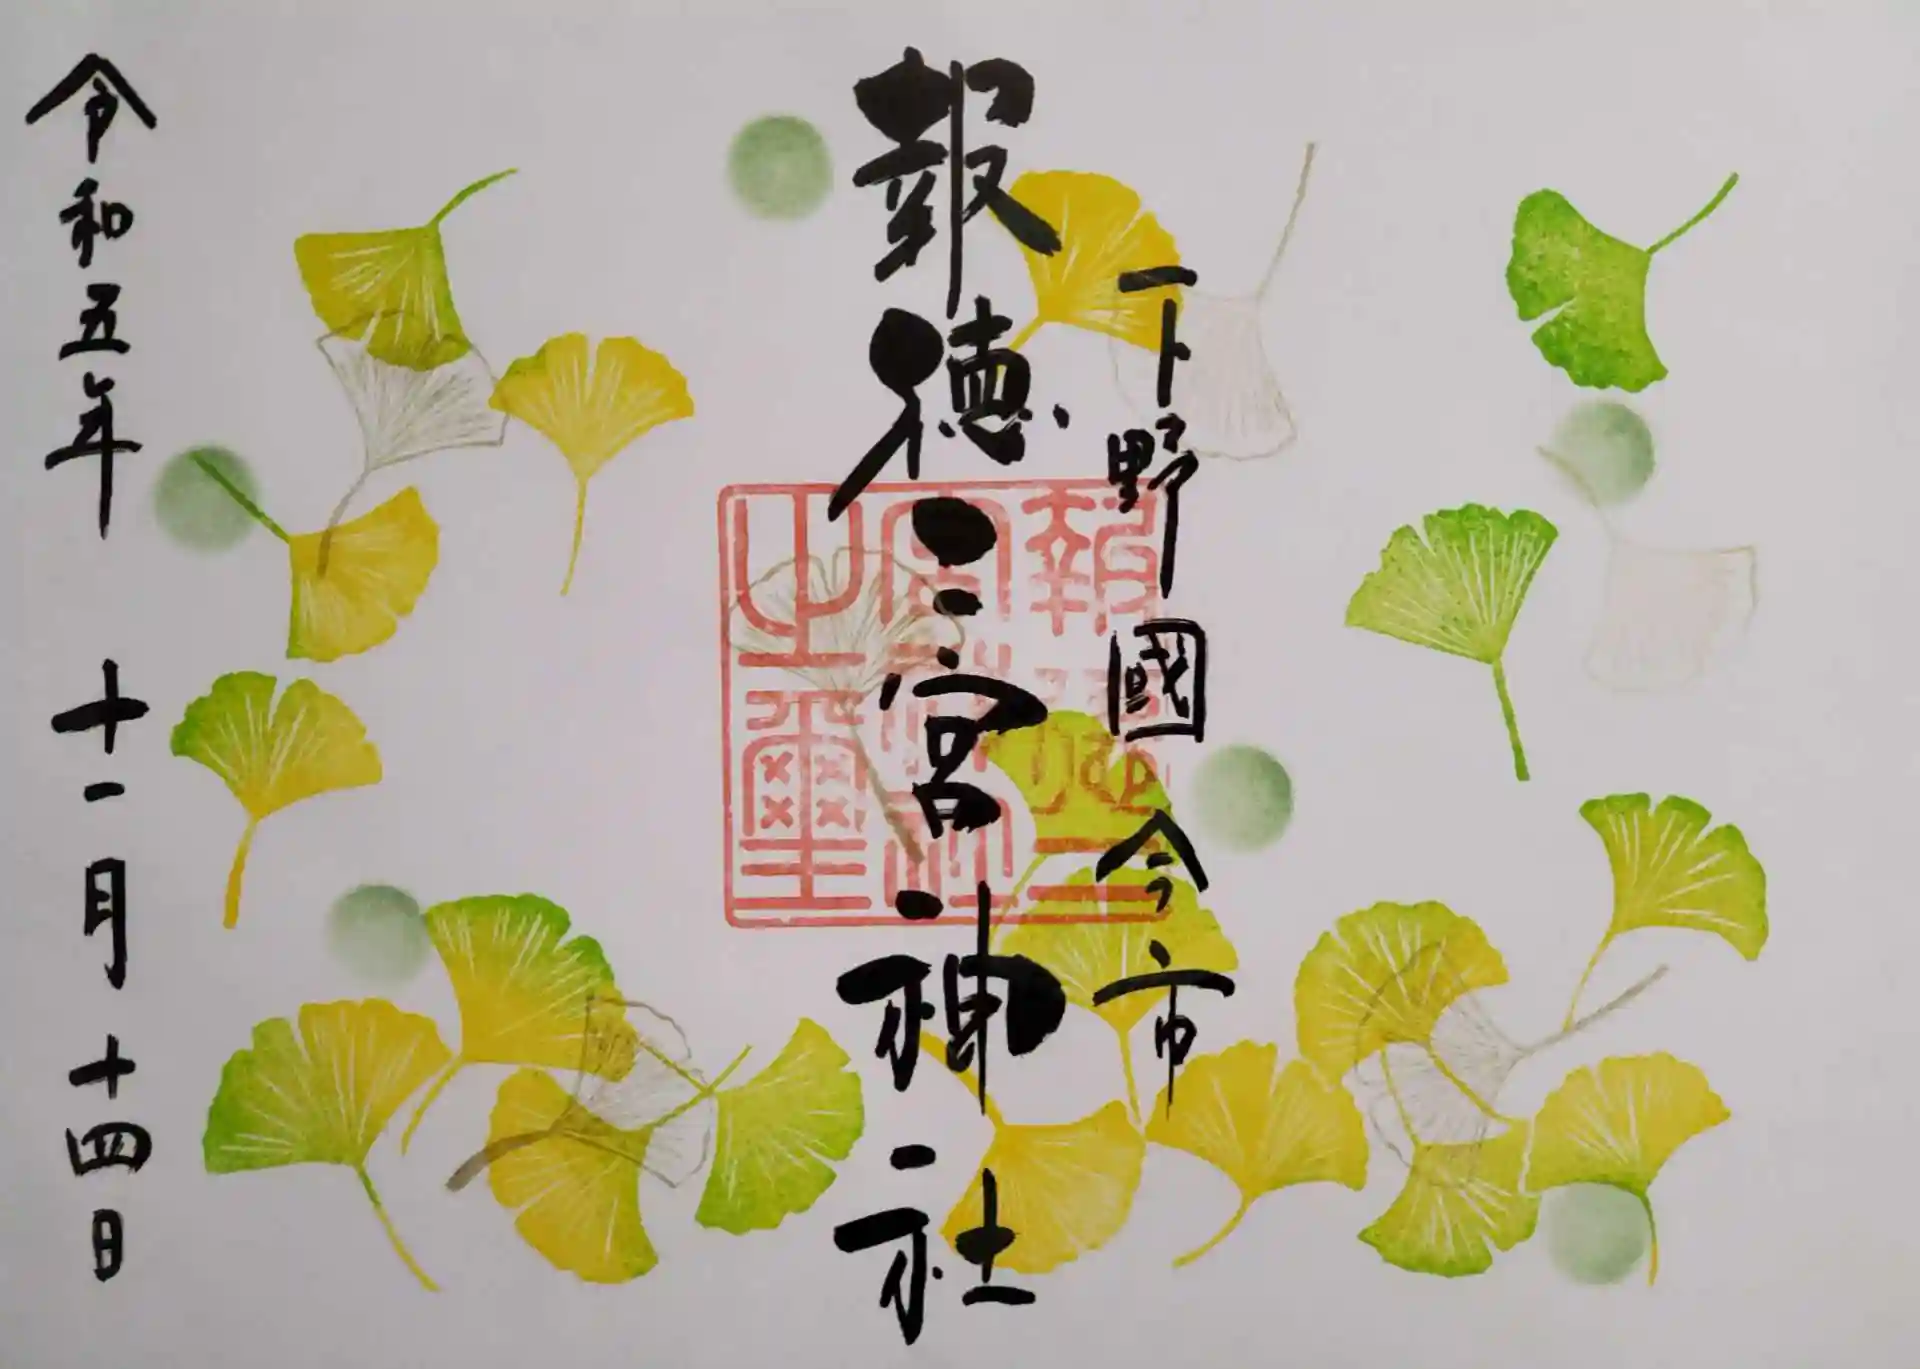 下野國今市
報徳二宮神社
報徳二
宮神社
之璽
令和五年 十一月 十四日